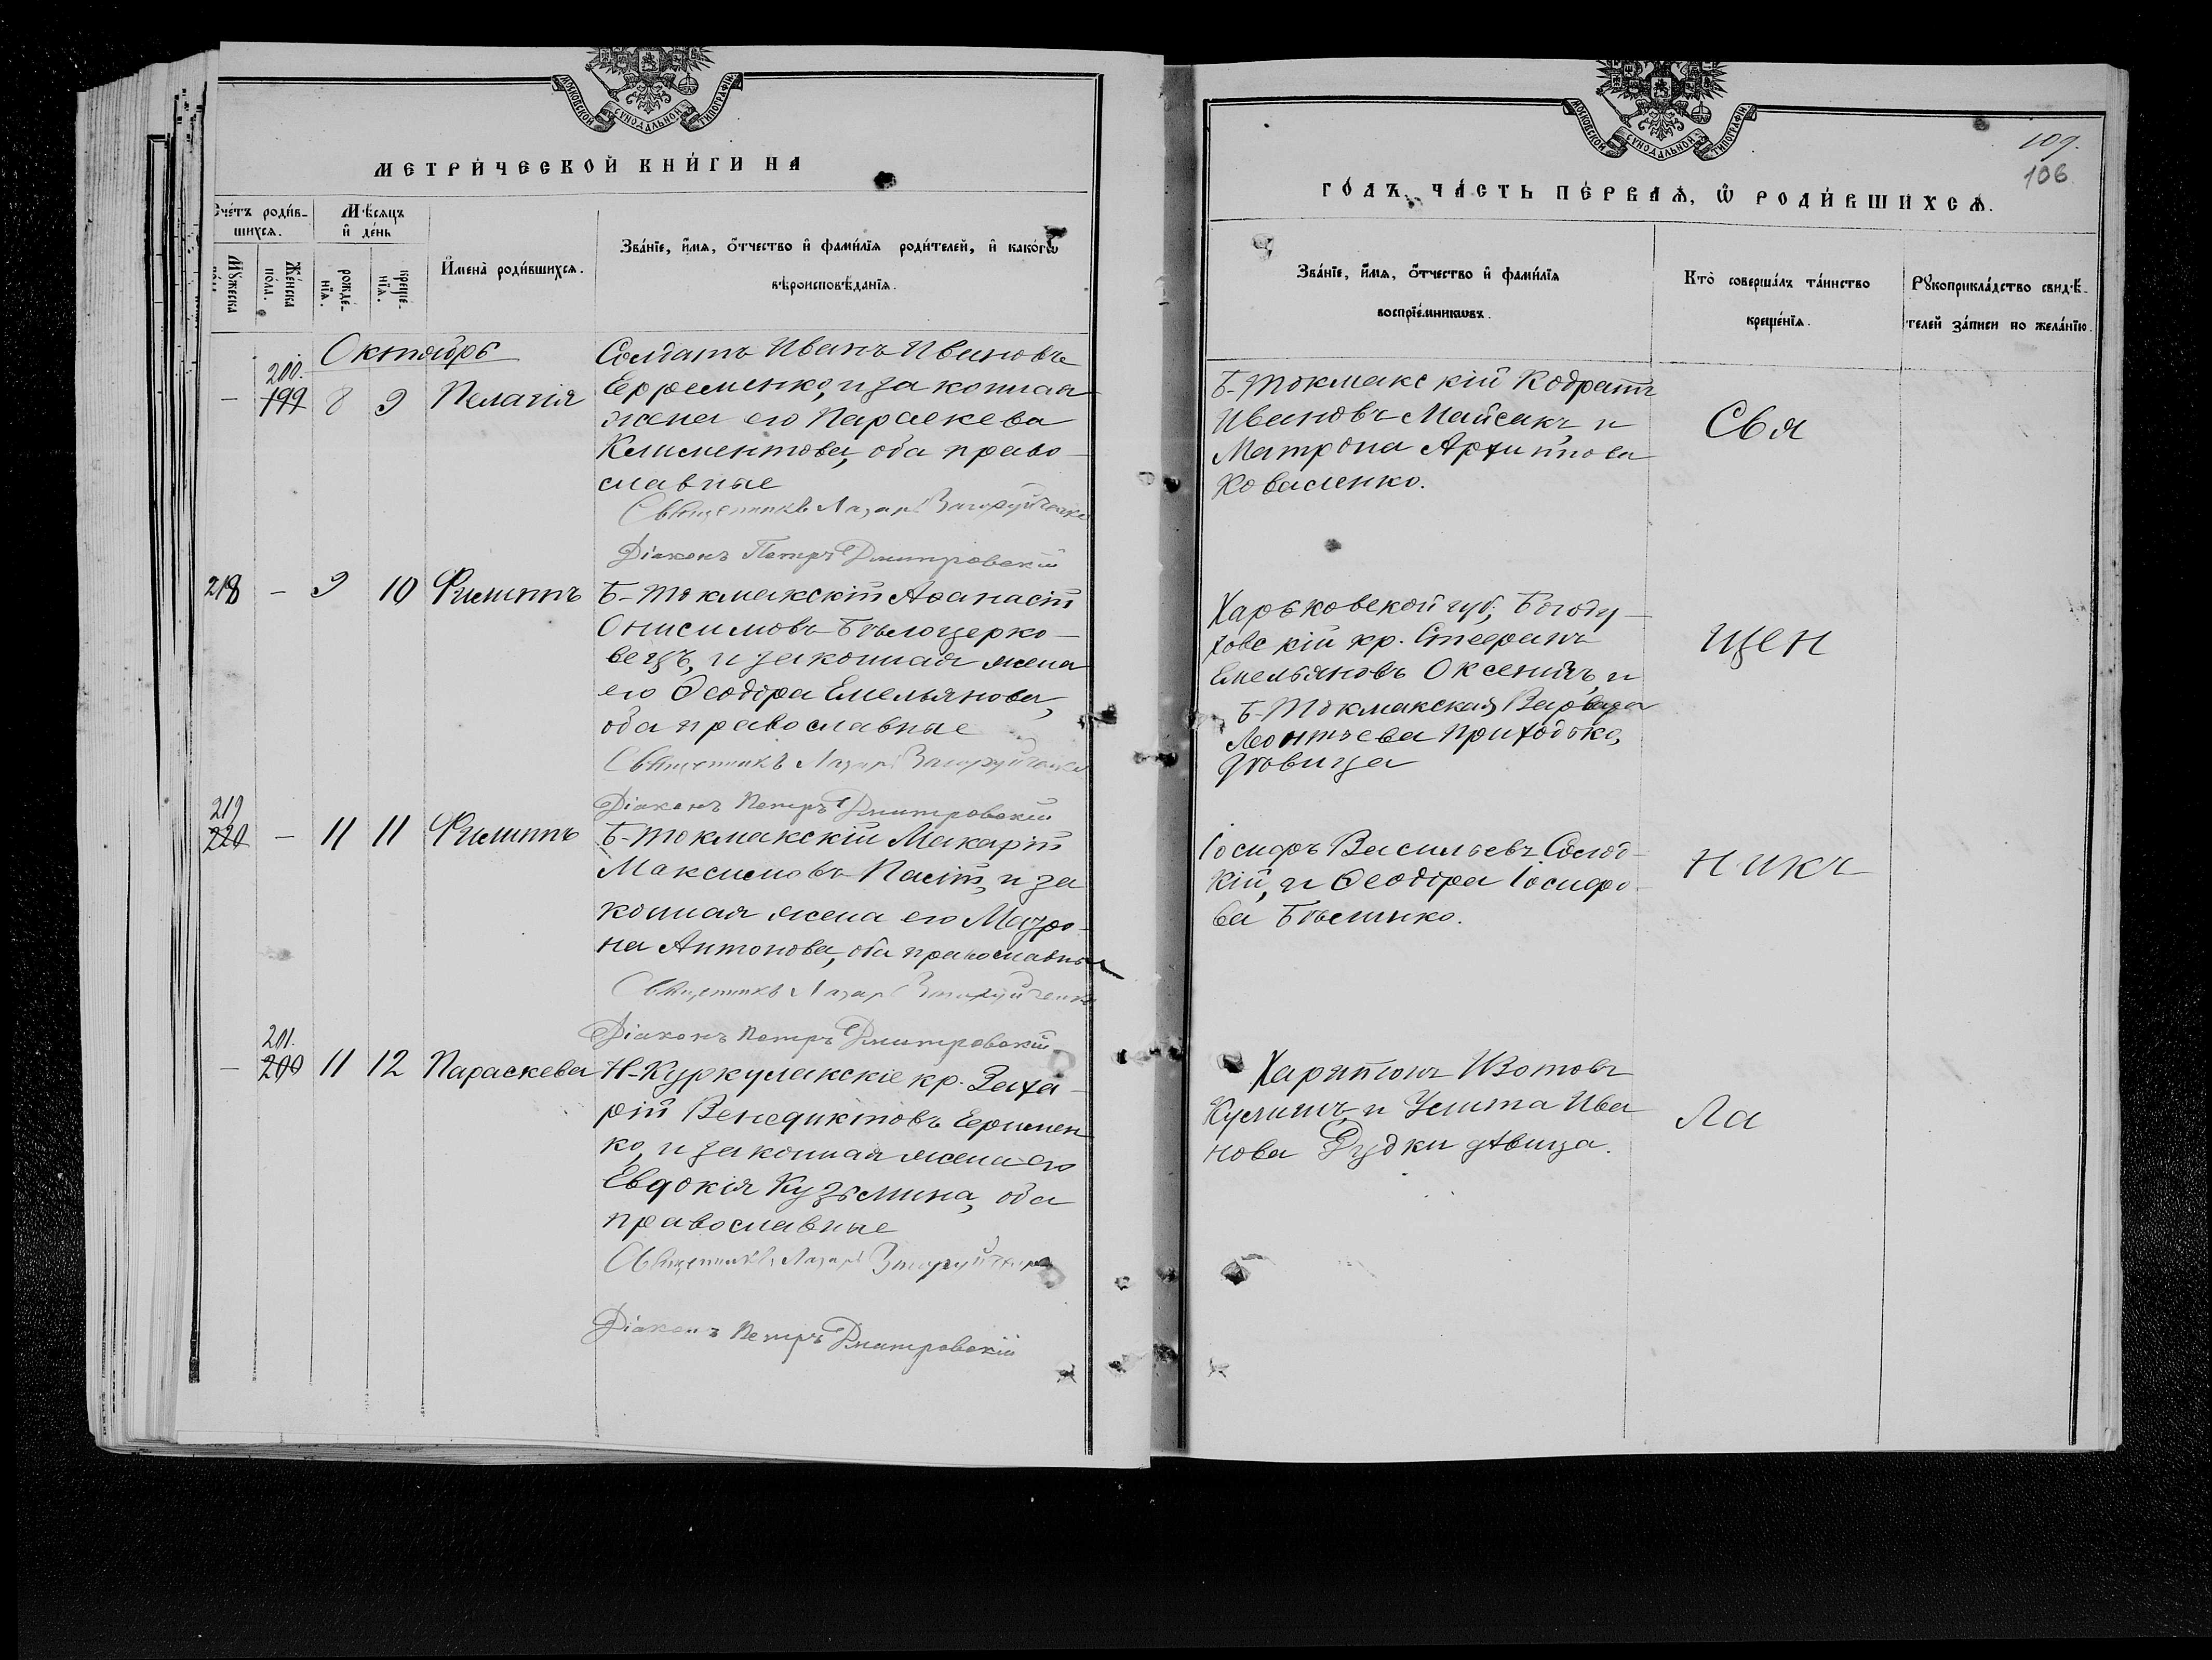 МОСКОВСКОЙ СУНОДАЛЬНОЙ ТИПОГРАФІИ
МЕТРИ́ЧЕСКОЙ КНИ́ГИ НА
Сче́тъ роди́в-
шихся.
Мѣ́сяцъ
и҆ де́нь
Мꙋ́жеска
по́ла.
Же́нска
по́ла.
рожде́-
нїѧ.
креще́-
нїѧ.
И҆мена̀ роди́вшихсѧ.
Зва́нїе, и҆́мѧ, ѻ҆́тчество и҆ фами́лїѧ роди́телей, и҆ како́гѡ
вѣроисповѣ́данїѧ.
Октябрь
200.
— 199 8 9 Пелагія
Солдатъ Иванъ Ивановъ
Ефременко, и законная
жена его Параскева
Климентова, оба право-
славные
Священникъ Лазарь Загоруйченко
Діаконъ Петръ Дмитровскій
218 — 9 10 Филиппъ
Б-Токмакскій Аѳанасій
Онисимовъ Бѣлоцерко-
вецъ, и законная жена
его Ѳеодора Емельянова,
оба православные
Священникъ Лазарь Загоруйченко
Діаконъ Петръ Дмитровскій
219
220 — 11 11 Филиппъ
Б-Токмакскій Макарій
Максимовъ Палій, и за
конная жена его Матро-
на Антонова, оба православные
Священникъ Лазарь Загоруйченко
Діаконъ Петръ Дмитровскій
201.
— 200 11 12 Параскева
Н-Куркулакскіе кр. Заха-
рій Венедиктовъ Еримен
ко, и законная жена его
Евдокія Кузьмина, оба
православные
Священникъ Лазарь Загоруйченко
Діаконъ Петръ Дмитровскій
МОСКОВСКОЙ СУНОДАЛЬНОЙ ТИПОГРАФІИ
109.
106
ГО́ДЪ, ЧА́СТЬ ПЕ́РВАѦ, Ѡ҆ РОДИ́ВШИХСѦ.
Зва́нїе, и҆́мѧ, ѻ҆́тчество и҆ фами́лїѧ
воспрїе́мникѡвъ.
Кто̀ соверша́лъ та́инство
креще́нїѧ.
Рꙋкоприкла́дство свидѣ́-
телей за́писи по жела́нїю.
Б-Токмакскій Кодратъ
Ивановъ Майсакъ, и
Матрона Архиппова
Коваленко.
Свя
Харьковской губ, Богоду-
ховскій кр. Стефанъ
Емельяновъ Оксеничъ, и
Б-Токмакская Варвара
Леонтьева Приходько,
дѣвица
щен
Іосифъ Васильевъ Солод-
кій, и Ѳеодора Іосифо-
ва Бѣленко.
никъ
Харитонъ Изотовъ
Куличъ, и Улита Ива
нова Рудки дѣвица.
Ла